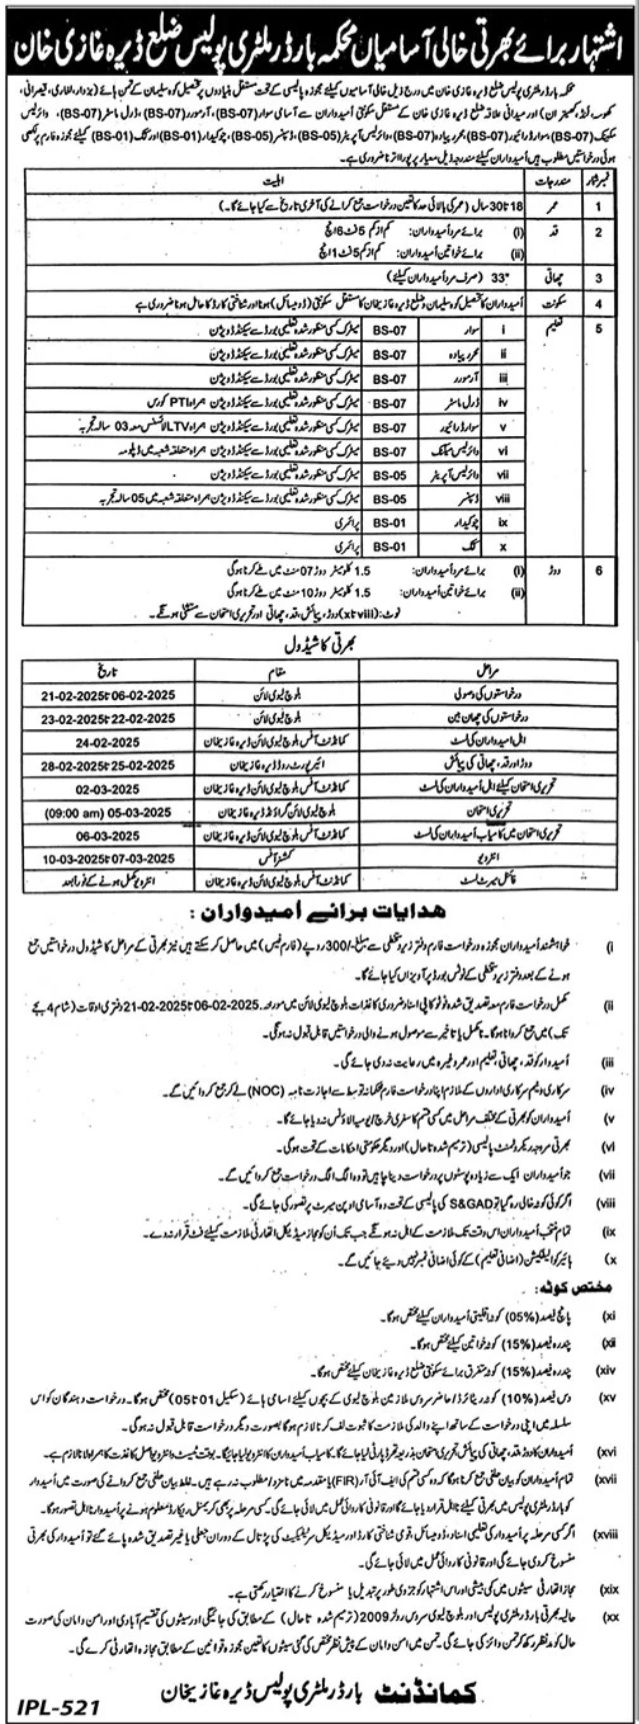 اشتہار برائے بھرتی خالی آسامیاں محکمہ بارڈر ملٹری پولیس ضلع ڈیرہ غازی خان
محکمہ بارڈر ملٹری پولیس ضلع ڈیرہ غازی خان میں درج ذیل خالی آسامیوں کیلئے مجوزہ پالیسی کے تحت مستقل بنیادوں پر تحصیل کوہ سلیمان کے تمن ہائے (بزدار، لغاری، قیصرانی،
کھوسہ، لُنڈ، کھیتران) اور میدانی علاقہ ضلع ڈیرہ غازی خان کے مستقل سکونتی امیدواران سے آسامی سوار (BS-07)، آرمورر (BS-07)، ڈرل ماسٹر (BS-07)، وائرلیس
مکینک (BS-07)، سوار ڈرائیور (BS-07)، محرر پیادہ (BS-07)، وائرلیس آپریٹر (BS-05)، ڈسپنسر (BS-05)، چوکیدار (BS-01) اور کُک (BS-01) کیلئے مجوزہ فارم پر لکھی
ہوئی درخواستیں مطلوب ہیں امیدواران کیلئے مندرجہ ذیل معیار پر پورا اترنا ضروری ہے۔
نمبر شمار مندرجات اہلیت
1 عمر 18 تا 30 سال (عمر کی بالائی حد کا تعین درخواست جمع کرانے کی آخری تاریخ سے کیا جائے گا۔)
2 قد (i) برائے مرد امیدواران: کم از کم 5 فٹ 6 انچ
(ii) برائے خواتین امیدواران: کم از کم 5 فٹ 1 انچ
3 چھاتی "33 (صرف مرد امیدواران کیلئے)
4 سکونت امیدواران کا تحصیل کوہ سلیمان ضلع ڈیرہ غازیخان کا مستقل سکونتی (ڈومیسائل) ہونا اور شناختی کارڈ کا حامل ہونا ضروری ہے
5 تعلیم i سوار BS-07 میٹرک کسی منظور شدہ تعلیمی بورڈ سے سیکنڈ ڈویژن
ii محرر پیادہ BS-07 میٹرک کسی منظور شدہ تعلیمی بورڈ سے سیکنڈ ڈویژن
iii آرمورر BS-07 میٹرک کسی منظور شدہ تعلیمی بورڈ سے سیکنڈ ڈویژن
iv ڈرل ماسٹر BS-07 میٹرک کسی منظور شدہ تعلیمی بورڈ سے سیکنڈ ڈویژن ہمراہ PTI کورس
v سوار ڈرائیور BS-07 میٹرک کسی منظور شدہ تعلیمی بورڈ سے سیکنڈ ڈویژن ہمراہ LTV لائسنس معہ 03 سالہ تجربہ
vi وائرلیس مکینک BS-07 میٹرک کسی منظور شدہ تعلیمی بورڈ سے سیکنڈ ڈویژن ہمراہ متعلقہ شعبہ میں ڈپلومہ
vii وائرلیس آپریٹر BS-05 میٹرک کسی منظور شدہ تعلیمی بورڈ سے سیکنڈ ڈویژن
viii ڈسپنسر BS-05 میٹرک کسی منظور شدہ تعلیمی بورڈ سے سیکنڈ ڈویژن ہمراہ متعلقہ شعبہ میں 05 سالہ تجربہ
ix چوکیدار BS-01 پرائمری
x کُک BS-01 پرائمری
6 دوڑ (i) برائے مرد امیدواران: 1.5 کلومیٹر دوڑ 07 منٹ میں طے کرنا ہوگی
(ii) برائے خواتین امیدواران: 1.5 کلومیٹر دوڑ 10 منٹ میں طے کرنا ہوگی
نوٹ: (viii تا x) دوڑ، پیمائش، قد، چھاتی اور تحریری امتحان سے مستثنیٰ ہونگے۔
بھرتی کا شیڈول
مراحل مقام تاریخ
درخواستوں کی وصولی بلوچ لیوی لائن 06-02-2025 تا 21-02-2025
درخواستوں کی چھان بین بلوچ لیوی لائن 22-02-2025 تا 23-02-2025
اہل امیدواران کی لسٹ کمانڈنٹ آفس بلوچ لیوی لائن ڈیرہ غازیخان 24-02-2025
دوڑ اور قد، چھاتی کی پیمائش ائیرپورٹ روڈ ڈیرہ غازیخان 25-02-2025 تا 28-02-2025
تحریری امتحان کیلئے اہل امیدواران کی لسٹ کمانڈنٹ آفس بلوچ لیوی لائن ڈیرہ غازیخان 02-03-2025
تحریری امتحان بلوچ لیوی لائن گراؤنڈ ڈیرہ غازیخان 05-03-2025 (09:00 am)
تحریری امتحان میں کامیاب امیدواران کی لسٹ کمانڈنٹ آفس بلوچ لیوی لائن ڈیرہ غازیخان 06-03-2025
انٹرویو کمشنر آفس 07-03-2025 تا 10-03-2025
فائنل میرٹ لسٹ کمانڈنٹ آفس بلوچ لیوی لائن ڈیرہ غازیخان انٹرویو مکمل ہونے کے فوراً بعد
ھدایات برائے اُمیدواران:
(i خواہشمند امیدواران مجوزہ درخواست فارم دفتر زیر دستخطی سے مبلغ -/300 روپے (فارم فیس) میں حاصل کر سکتے ہیں نیز بھرتی کے مراحل کا شیڈول درخواستیں جمع
ہونے کے بعد دفتر زیر دستخطی کے نوٹس بورڈ پر آویزاں کیا جائے گا۔
(ii مکمل درخواست فارم معہ تصدیق شدہ فوٹو کاپی اسناد ضروری کاغذات بلوچ لیوی لائن میں مورخہ 06-02-2025 تا 21-02-2025 دفتری اوقات (شام 4 بجے
تک) میں جمع کروانا ہوگا۔ نامکمل یا تاخیر سے موصول ہونے والی درخواستیں قابل قبول نہ ہونگی۔
(iii امیدوار کو قد، چھاتی، تعلیم اور عمر وغیرہ میں رعایت نہ دی جائے گی۔
(iv سرکاری و نیم سرکاری اداروں کے ملازم اپنا درخواست فارم محکمانہ توسط سے اجازت نامہ (NOC) لے کر جمع کروائیں گے۔
(v امیدواران کو بھرتی کے مختلف مراحل میں کسی قسم کا سفری خرچ / یومیہ الاؤنس نہ دیا جائے گا۔
(vi بھرتی مروجہ ریکروٹمنٹ پالیسی (ترمیم شدہ تا حال) اور دیگر حکومتی احکامات کے تحت ہوگی۔
(vii جو امیدواران ایک سے زیادہ پوسٹوں پر درخواست دینا چاہیں تو وہ الگ الگ درخواست جمع کروائیں گے۔
(viii اگر کوئی کوٹہ خالی رہ گیا تو S&GAD کی پالیسی کے تحت وہ آسامی اوپن میرٹ پر تصور کی جائے گی۔
(ix تمام منتخب امیدواران اس وقت تک ملازمت کے اہل نہ ہونگے جب تک اُن کو مجاز میڈیکل اتھارٹی ملازمت کیلئے فٹ قرار نہ دے۔
(x ہائیر کوالیفکیشن (اضافی تعلیم) کے کوئی اضافی نمبر نہیں دیئے جائیں گے۔
مختص کوٹہ:
(xi پانچ فیصد (05%) کوٹہ اقلیتی امیدواران کیلئے مختص ہوگا۔
(xii پندرہ فیصد (15%) کوٹہ خواتین کیلئے مختص ہوگا۔
(xiv پندرہ فیصد (15%) کوٹہ متفرق برائے سکونتی ضلع ڈیرہ غازیخان کیلئے مختص ہوگا۔
(xv دس فیصد (10%) کوٹہ ریٹائرڈ / حاضر سروس ملازمین بلوچ لیوی کے بچوں کیلئے اسامی ہائے (سکیل 01 تا 05) مختص ہوگا۔ درخواست دہندگان کو اس
سلسلہ میں اپنی درخواست کے ساتھ اپنے والد کی ملازمت کا ثبوت لف کرنا لازم ہوگا بصورت دیگر درخواست قابل قبول نہ ہوگی۔
(xvi امیدواران کا دوڑ، قد، چھاتی کی پیمائش، تحریری امتحان بذریعہ تھرڈ پارٹی لیا جائے گا۔ کامیاب امیدواران کا انٹرویو لیا جائیگا۔ بوقت ٹیسٹ و انٹرویو اصل کاغذات کا ہمراہ لانا لازم ہے۔
(xvii تمام امیدواران کو بیان حلفی جمع کرنا ہوگا کہ وہ کسی قسم کی ایف آئی آر (FIR) یا مقدمہ میں نامزد / مطلوب نہ رہے ہیں۔ غلط بیان حلفی جمع کروانے کی صورت میں امیدوار
کو بارڈر ملٹری پولیس میں بھرتی کیلئے نا اہل قرار دیا جائے گا اور قانونی کاروائی عمل میں لائی جائے گی۔ کسی مرحلہ پر بھی کریمنل ریکارڈ معلوم ہونے پر امیدوار نا اہل تصور ہوگا۔
(xviii اگر کسی مرحلہ پر امیدوار کی تعلیمی اسناد، ڈومیسائل، قومی شناختی کارڈ اور میڈیکل سرٹیفکیٹ کی پڑتال کے دوران جعلی یا غیر تصدیق شدہ پائے گئے تو امیدوار کی بھرتی
منسوخ کر دی جائے گی اور قانونی کاروائی عمل میں لائی جائے گی۔
(xix مجاز اتھارٹی سیٹوں میں کمی بیشی اور اس اشتہار کو جزوی طور پر تبدیل یا منسوخ کرنے کا اختیار رکھتی ہے۔
(xx حالیہ بھرتی بارڈر ملٹری پولیس اور بلوچ لیوی سروس رولز 2009 (ترمیم شدہ تا حال) کے مطابق کی جائیگی اور سیٹوں کی تقسیم آبادی اور امن و امان کی صورت
حال کو مد نظر رکھ کر تمن وائز کی جائے گی۔ تمن میں امن و امان کے پیش نظر مختص کی گئی سیٹوں کا تعین مجوزہ قوانین کے مطابق مجاز اتھارٹی کرے گی۔
کمانڈنٹ بارڈر ملٹری پولیس ڈیرہ غازیخان
IPL-521